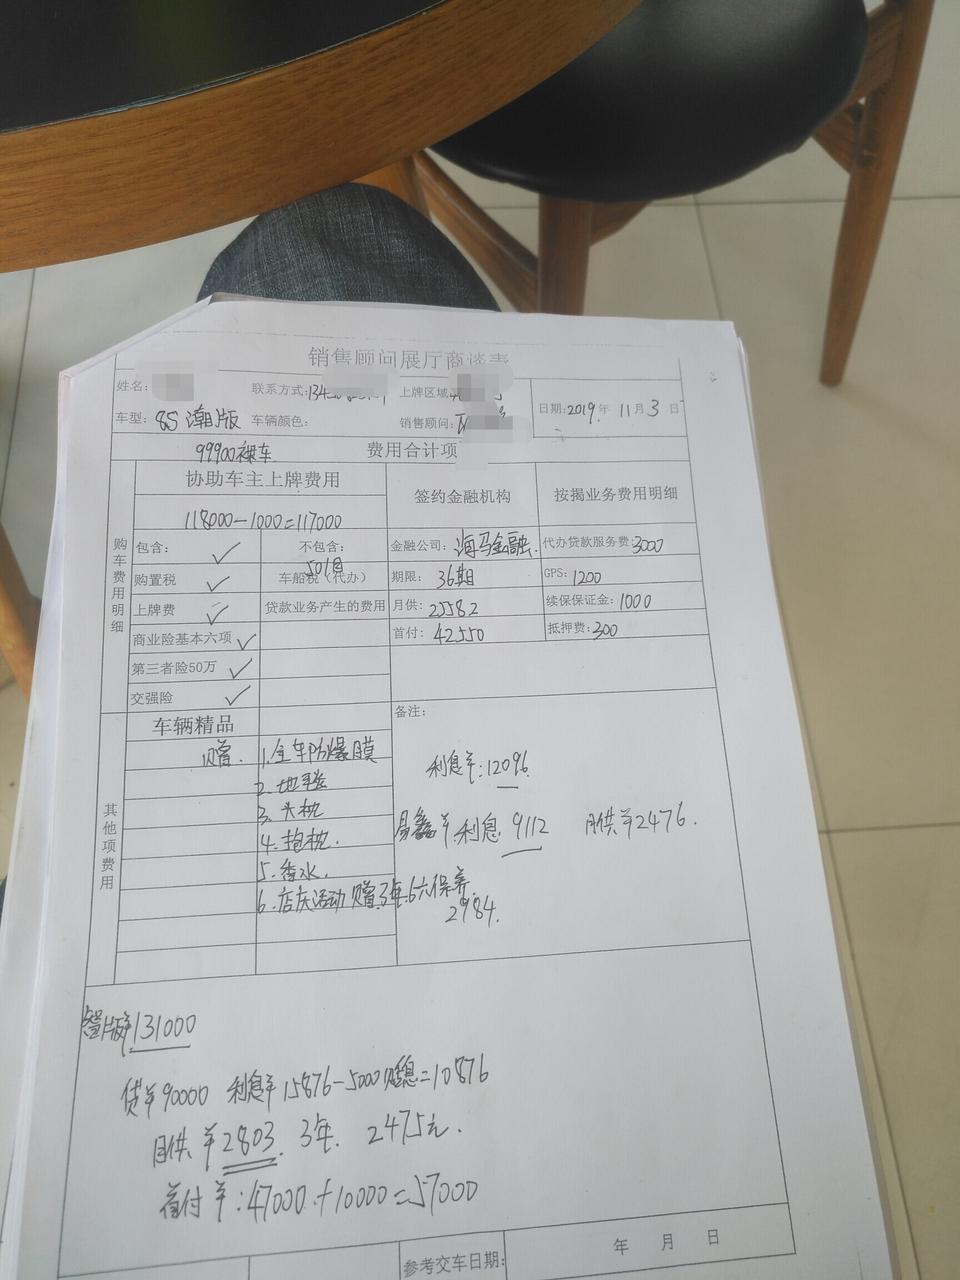 销售顾问展厅商谈表
姓名: 联系方式: 上牌区域
日期: 2019 年 11 月 3 日
车型: 8S 潮版 车辆颜色: 销售顾问:
99900裸车 费用合计项
购车费用明细
协助车主上牌费用 签约金融机构 按揭业务费用明细
118000-1000=117000
包含: ✓ 不包含: 金融公司: 海马金融. 代办贷款服务费: 3000
购置税 ✓ 车船税(代办) 期限: 36期 GPS: 1200
上牌费 ✓ 贷款业务产生的费用 月供: 2558.2 续保保证金: 1000
商业险基本六项 ✓ 首付: 42550 抵押费: 300
第三者险50万 ✓
交强险 ✓
其他项费用
车辆精品 备注:
赠. 1.全车防爆膜
2.地毯
3.头枕
4.抱枕.
5.香水.
6.店庆活动 赠3年6次保养.
利息¥:12096.
易鑫¥.利息.9112 月供¥2476.
2984.
智版¥131000
贷¥90000 利息¥15876-5000贴息=10876
月供¥2803. 3年. 2475元.
首付¥:47000+10000=57000
参考交车日期: 年 月 日